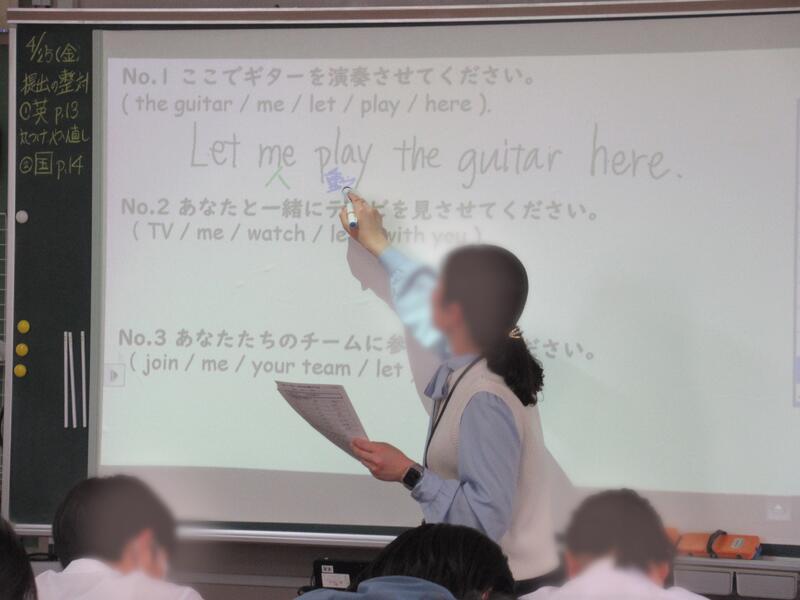 4/25(金)
提出の整対
①英 p.13
丸つけやり直し
②国 p.14
No.1 ここでギターを演奏させてください。
( the guitar / me / let / play / here ).
Let me play the guitar here.
人 動
No.2 あなたと一緒にテレビを見させてください。
( TV / me / watch / le with you )
No.3 あなたたちのチームに参 ださい。
( join / me / your team / let